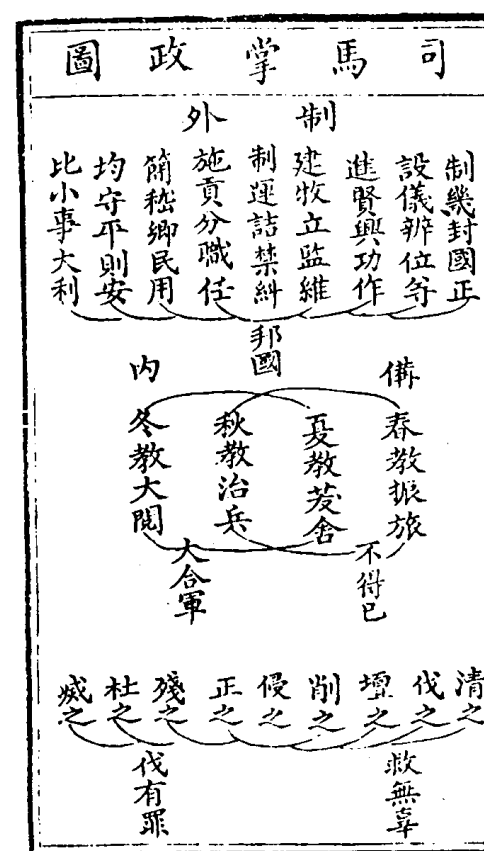 司馬掌政圖
制外
制幾封國正
設儀辨位等
進賢興功作
建牧立監維
制運詰禁糾
施貢分職任
簡稽鄉民用
均守平則安
比小事大利
邦國
備內
春教振旅
夏教茇舍
秋教治兵
冬教大閱
不得已
大合軍
清之
伐之
壇之
削之
侵之
正之
殘之
杜之
滅之
救無辜
伐有罪